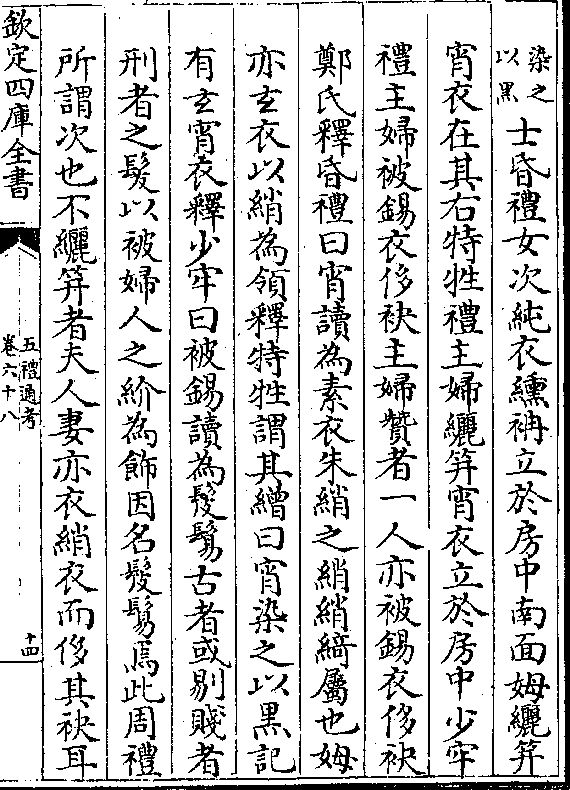 染之
以黑
士昏禮女次純衣纁袡立於房中南面姆纚笄
宵衣在其右特牲禮主婦纚笄宵衣立於房中少牢
禮主婦被錫衣侈袂主婦贊者一人亦被錫衣侈袂
鄭氏釋昏禮曰宵讀為素衣朱綃之綃綃綺屬也姆
亦玄衣以綃為領釋特牲謂其繒曰宵染之以黑記
有玄宵衣釋少牢曰被錫讀為髲鬄古者或剔賤者
刑者之髮以被婦人之紒為飾因名髲鬄焉此周禮
所謂次也不纚笄者夫人妻亦衣綃衣而侈其袂耳
欽定四庫全書
五禮通考
卷六十八
十四